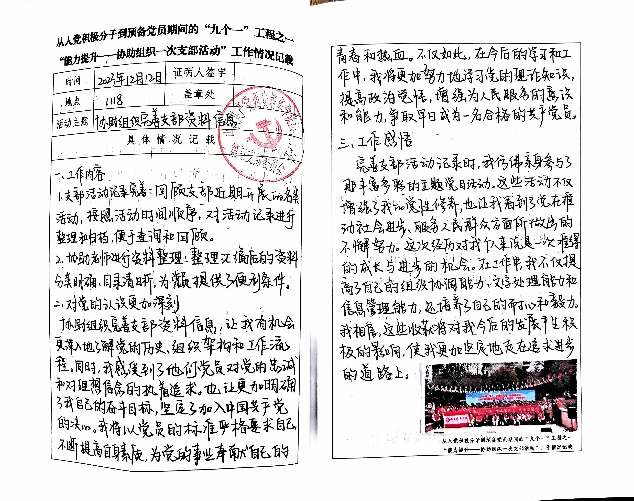 从入党积极分子到预备党员期间的“九个一”工程之一
“能力提升——协助组织一次支部活动”工作情况记载
时间 2023年12月12日 证明人签字
地点 1118 盖章处
活动主题 协助组织完善支部资料信息
具体情况记载
一、工作内容
1.支部活动记录完善：回顾支部近期开展的各类
活动，按照活动时间顺序，对活动记录进行
整理和归档，便于查询和回顾。
2.协助老师进行资料整理：整理汇编后的资料
分类明确，目录清晰，为党员提供了便利条件。
二、对党的认识更加深刻
协助组织完善支部资料信息，让我有机会
更深入地了解党的历史、组织架构和工作流
程。同时，我感受到了他们党员对党的忠诚
和对理想信念的执着追求。也让更加明确
了我自己的奋斗目标，坚定了加入中国共产党
的决心。我将以党员的标准严格要求自己，
不断提高自身素质，为党的事业奉献自己的
青春和热血。不仅如此，在今后的学习和工
作中，我将更加努力地学习党的理论知识，
提高政治觉悟，增强为人民服务的意识
和能力，争取早日成为一名合格的共产党员。
三、工作感悟
完善支部活动记录时，我仿佛亲身参与了
那丰富多彩的主题党日活动。这些活动不仅
增强了我的党性修养，也让我看到了党在推
动社会进步、服务人民群众方面所做出的
不懈努力。这次经历对我个人来说是一次难得
的成长与进步的机会。在工作中我不仅提
高了自己的组织协调能力，文字处理能力和
信息管理能力，还培养了自己的耐心和毅力。
我相信，这些收获将对我今后的发展产生积
极的影响，使我更加坚定地走在追求进步
的道路上。
从入党积极分子到预备党员期间的“九个一”工程之一
“能力提升——协助组织一次支部活动”工作情况记载